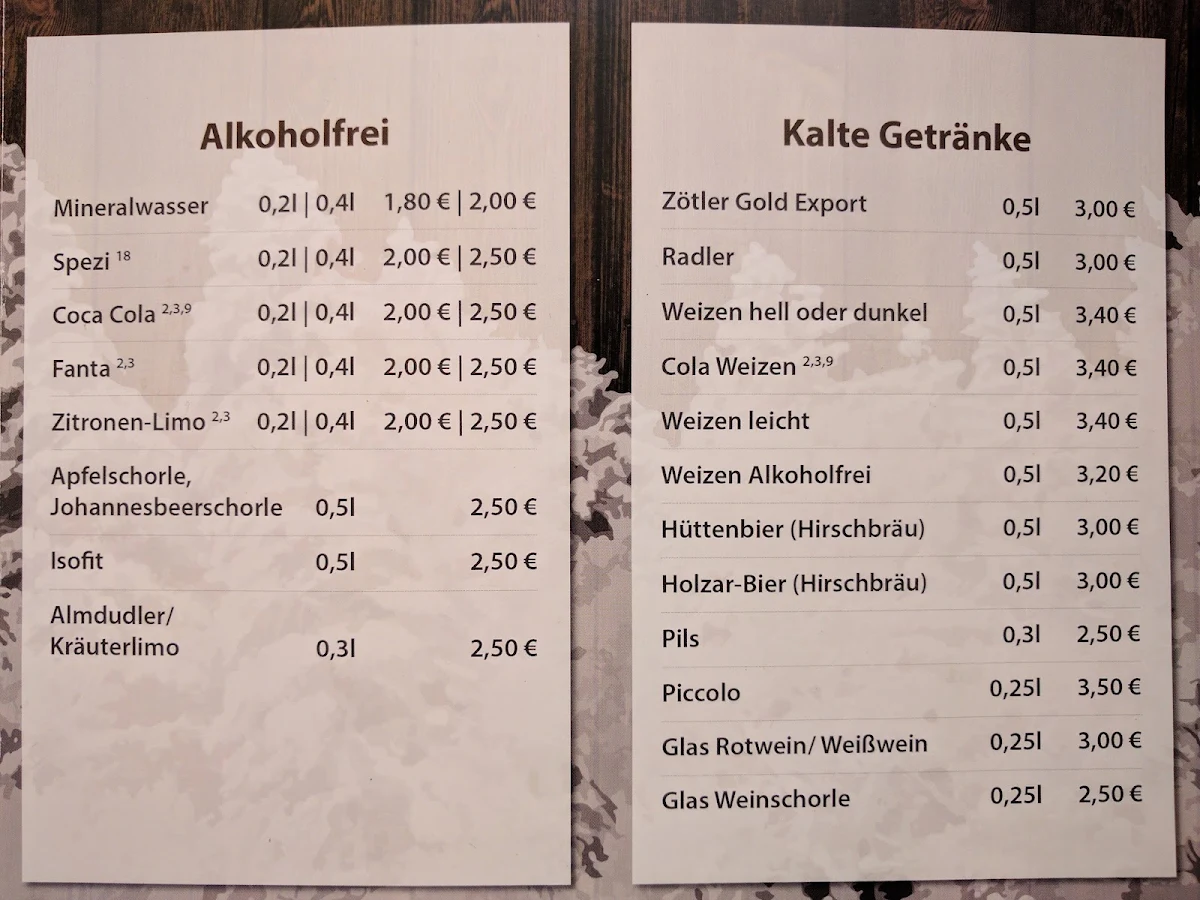 Alkoholfrei
Mineralwasser 0,2l | 0,4l 1,80 € | 2,00 €
Spezi 18 0,2l | 0,4l 2,00 € | 2,50 €
Coca Cola 2,3,9 0,2l | 0,4l 2,00 € | 2,50 €
Fanta 2,3 0,2l | 0,4l 2,00 € | 2,50 €
Zitronen-Limo 2,3 0,2l | 0,4l 2,00 € | 2,50 €
Apfelschorle,
Johannesbeerschorle 0,5l 2,50 €
Isofit 0,5l 2,50 €
Almdudler/
Kräuterlimo 0,3l 2,50 €
Kalte Getränke
Zötler Gold Export 0,5l 3,00 €
Radler 0,5l 3,00 €
Weizen hell oder dunkel 0,5l 3,40 €
Cola Weizen 2,3,9 0,5l 3,40 €
Weizen leicht 0,5l 3,40 €
Weizen Alkoholfrei 0,5l 3,20 €
Hüttenbier (Hirschbräu) 0,5l 3,00 €
Holzar-Bier (Hirschbräu) 0,5l 3,00 €
Pils 0,3l 2,50 €
Piccolo 0,25l 3,50 €
Glas Rotwein/ Weißwein 0,25l 3,00 €
Glas Weinschorle 0,25l 2,50 €